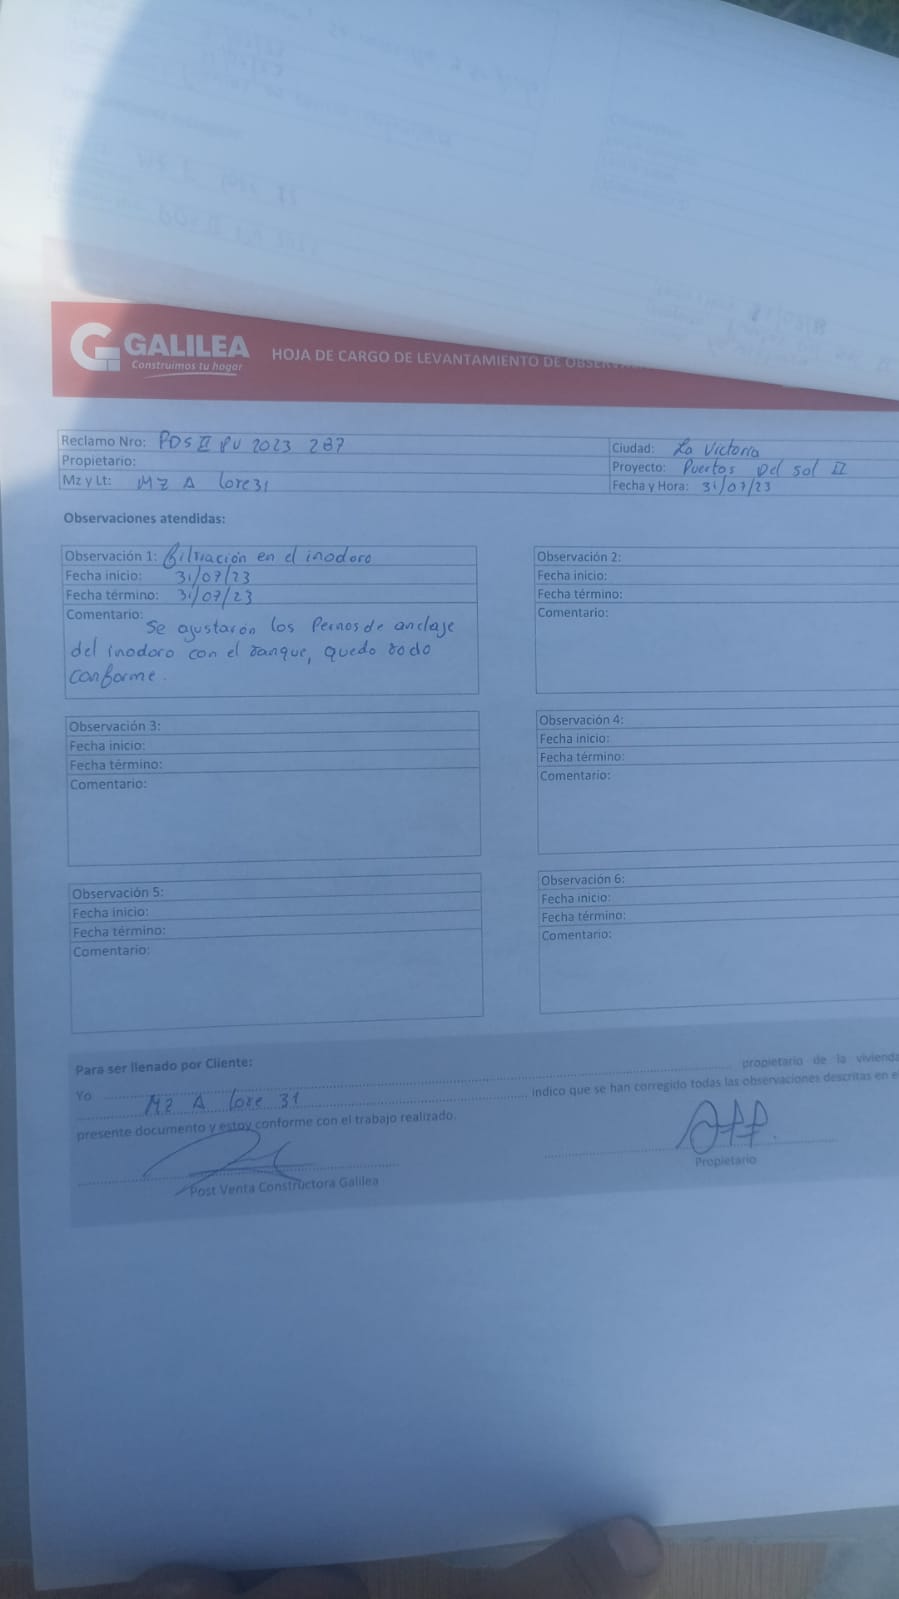 GALILEA
Construimos tu hogar
HOJA DE CARGO DE LEVANTAMIENTO DE
Reclamo Nro: PDS II PV 2023 287
Ciudad: La Victoria
Propietario:
Proyecto: Puertas Del sol II
Mz y Lt: MZ A lote 31
Fecha y Hora: 31/07/23
Observaciones atendidas:
Observación 1: filtración en el inodoro
Fecha inicio: 31/07/23
Fecha término: 31/07/23
Comentario: Se ajustarón los Pernos de anclaje
del inodoro con el tanque, quedo todo
conforme.
Observación 2:
Fecha inicio:
Fecha término:
Comentario:
Observación 3:
Fecha inicio:
Fecha término:
Comentario:
Observación 4:
Fecha inicio:
Fecha término:
Comentario:
Observación 5:
Fecha inicio:
Fecha término:
Comentario:
Observación 6:
Fecha inicio:
Fecha término:
Comentario:
Para ser llenado por Cliente:
Yo propietario de la vivienda
MZ A lote 31 indico que se han corregido todas las observaciones descritas en e
presente documento y estoy conforme con el trabajo realizado.
Post Venta Constructora Galilea
Propietario